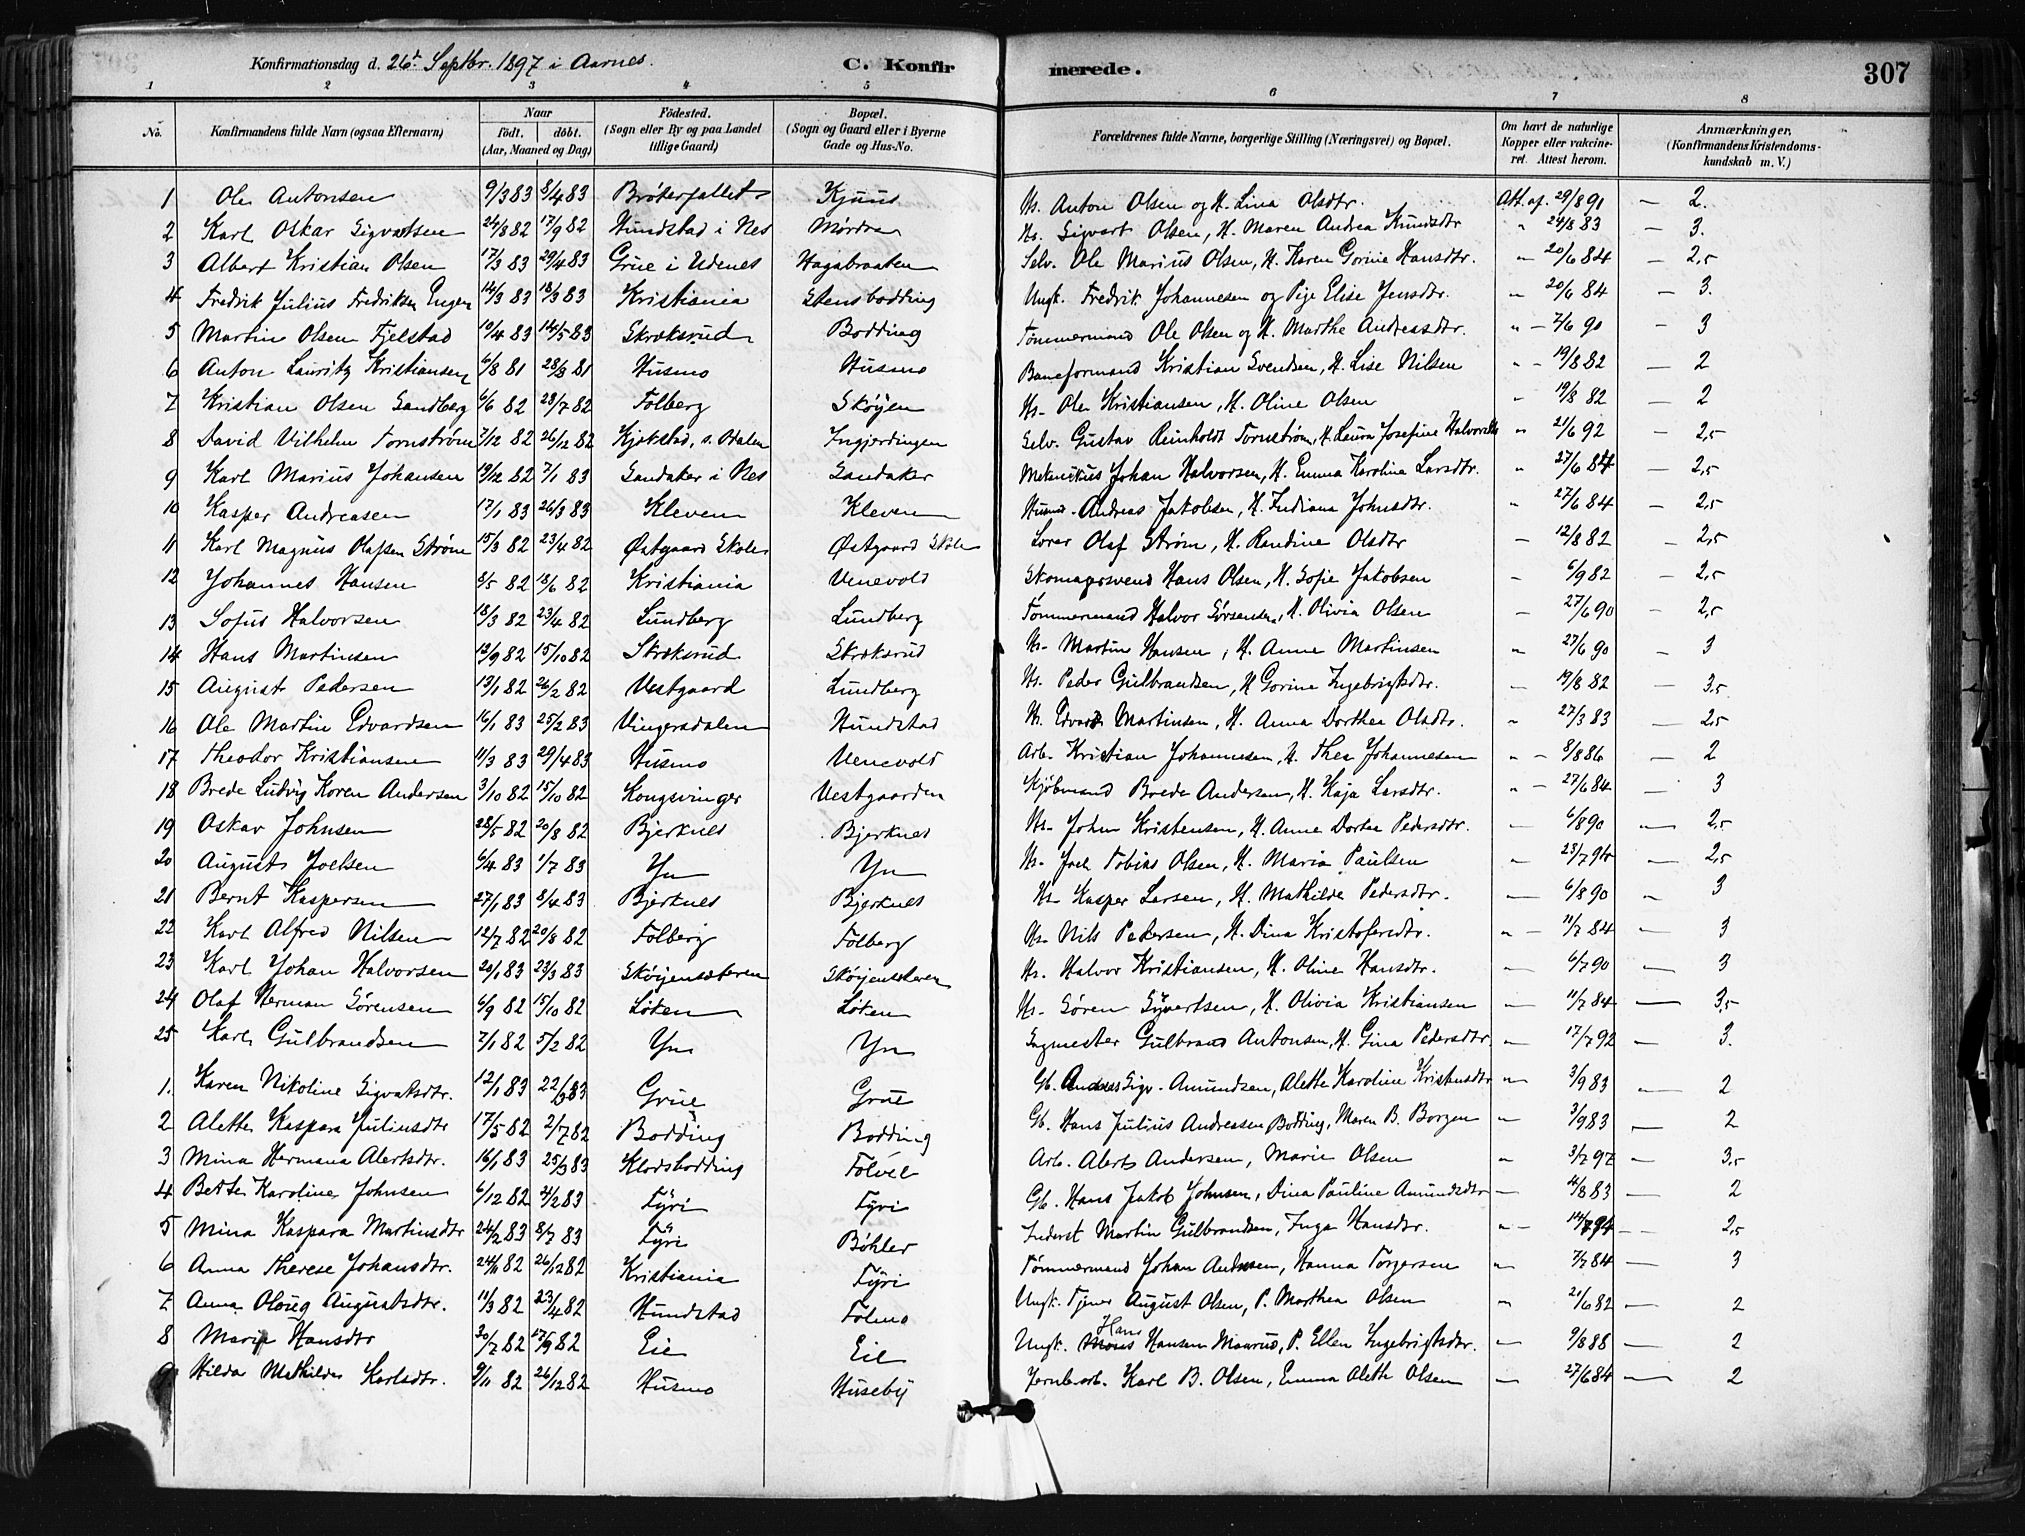 Konfirmationsdag d. 26d Septbr. 1897 i Aarnes. C. Konfirmerede. 307
1 2 3 4 5 6 7 8
No. Konfirmandens fulde Navn (ogsaa Efternavn) Naar født. døbt. (Aar, Maaned og Dag) Fødested. (Sogn eller By og paa Landet tillige Gaard) Bopæl. (Sogn og Gaard eller i Byerne Gade og Hus-No. Forældrenes fulde Navne, borgerlige Stilling (Næringsvei) og Bopæl. Om havt de naturlige Kopper eller vaccineret. Attest herom. Anmærkninger. (Konfirmandens Kristendomskundskab m. V.)
1 Ole Antonsen 9/3 83 8/4 83 Brøterfallet Kjuus Hs. Anton Olsen og H. Lina Olsdtr. Att. af. 29/8 91 — 2.
2 Karl Oskar Sigvartsen 24/8 82 17/9 82 Hundstad i Nes Mørdre Hs. Sigvart Olsen, H. Maren Andrea Knudsdtr " 24/8 83 — 3.
3 Albert Kristian Olsen 17/3 83 29/4 83 Grue i Udenes Hagabraaten Selv. Ole Marius Olsen, H. Karen Gorine Hansdtr. " 20/6 84 — 2,5
4 Fredrik Julius Fredriksen Engen 14/3 83 18/3 83 Kristiania Stensbodding Ungk. Fredrik Johannesen og Pige Elise Jensdtr. " 20/6 84 — 3.
5 Martin Olsen Fjelstad 10/4 83 14/5 83 Skroksrud Bodding Tømmermand Ole Olsen og H. Marthe Andreasdtr. " — 7/6 90 — 3
6 Anton Lauritz Kristiansen 6/8 81 28/8 81 Husmo Husmo Baneformand Kristian Svendsen, H. Lise Nilsen " - 19/8 82 — 2
7 Kristian Olsen Sandberg 6/6 82 28/7 82 Folberg Skøyen Hs. Ole Kristiansen, H. Oline Olsen " 19/8 82 — 2
8 David Vilhelm Tornstrøm 7/12 82 26/12 82 Kjokstad, s. Odalen Ingjerdingen Selv. Gustav Reinholdt Tornstrøm, H. Laura Josefine Halvorsdtr " 21/6 92 — 2,5
9 Karl Marius Johansen 19/12 82 7/1 83 Sandaker i Nes Sandaker Mekanikus Johan Halvorsen, H. Emma Karoline Larsdtr. " 27/6 84 — 2,5
10 Kasper Andreasen 17/1 83 26/3 83 Kleven Kleven Husmd. Andreas Jakobsen, H. Indiana Johnsdtr. " 27/6 84 — 2,5
11 Karl Magnus Olafsen Strøm 15/3 82 23/4 82 Østgaard Skole Østgaard Skole Lærer Olaf Strøm, H. Randine Olsdtr — 12/8 82 — 2,5
12 Johannes Hansen 8/5 82 18/6 82 Kristiania Venevold Skomagersvend Hans Olsen, H. Sofie Jakobsen — 6/9 82 — 2,5
13 Sofus Halvorsen 18/3 82 23/4 82 Lundberg Lundberg Tømmermand Halvor Sørensen, H. Olivia Olsen — 27/6 90 — 2,5
14 Hans Martinsen 12/9 82 15/10 82 Skroksrud Skroksrud Hs. Martin Hansen, H. Anne Martinsen " 27/6 90 — 3
15 August Pedersen 19/1 82 26/2 82 Vestgaard Lundberg Hs. Peder Gulbrandsen, H Gorine Ingebrigtsdtr. — 19/8 82 — 3,5
16 Ole Martin Edvardsen 16/1 83 25/2 83 Vingersdalen Hundstad Hs. Edvard Martinsen, H. Anna Dorthea Olsdtr. " 27/3 83 — 2,5
17 Theodor Kristiansen 11/3 83 29/4 83 Husmo Venevold Arb. Kristian Johannesen, H. Thea Johannesen " - 8/8 86 — 2
18 Brede Ludvig Koren Andersen 3/10 82 15/10 82 Kongsvinger Vestgaarden Kjøbmand Brede Andersen, H. Kaja Larsdtr. " - 27/6 84 — 3
19 Oskar Johnsen 28/5 82 20/8 82 Bjerknes Bjerknes Hs. John Kristensen, H. Anne Dortea Pedersdtr. — 6/8 90 — 2,5
20 August Joelsen 6/4 83 1/7 83 Yn Yn Hs. Joel Tobias Olsen, H. Maria Paulsen " 23/7 94 — 2,5
21 Bernt Kaspersen 27/1 83 8/4 83 Bjerknes Bjerknes Hs. Kasper Larsen, H. Mathilde Pedersdtr. — 6/8 90 — 3
22 Karl Alfred Nilsen 12/7 82 20/8 82 Folberg Folberg Hs. Nils Pedersen, H. Dina Kristofersdtr. " - 11/7 84 — 3
23 Karl Johan Halvorsen 20/1 83 23/3 83 Skøyensæteren Skøyensæteren Hs. Halvor Kristiansen, H. Oline Hansdtr. — 6/7 90 — 3
24 Olaf Herman Sørensen 6/9 82 15/10 82 Løken Løken Hs. Søren Syvertsen, H. Olivia Kristiansen — 11/7 84 — 3,5
25 Karl Gulbrandsen 7/1 82 5/2 82 Yn Yn Sagmester Gulbrand Antonsen, H. Gina Pedersdtr. — 17/7 92 — 3.
1. Karen Nikoline Sigvartsdtr. 12/1 83 22/3 83 Grue Grue Gb. Andreas Sigv. Amundsen, Alette Karoline Kristensdtr " 3/9 83 — 2
2 Alette Kaspara Juliusdtr 17/5 82 2/7 82 Bodding Bodding Gb. Hans Julius Andreasen Bodding, Maren B. Borgen " 3/9 83 — 2
3 Mina Hermana Alertsdtr. 16/1 83 25/3 83 Klodsbodding Folvel Arb. Alert Andersen, Marie Olsen " 3/7 97 — 3,5
4 Berte Karoline Johnsen 6/12 82 4/2 83 Fyri Fyri Gb. Hans Jakob Johnsen, Dina Pauline Amundsdtr — 4/8 83 — 2
5 Mina Kaspara Martinsdtr 24/2 83 8/7 83 Fyri Bøhler Inderst Martin Gulbrandsen, Inga Hansdtr. " - 14/7 94 — 2,5
6 Anna Therese Johansdtr. 24/11 82 26/12 82 Kristiania Fyri Tømmermand Johan Andersen, Hanna Torgersen " 7/7 84 — 3
7 Anna Oloug Augustsdtr. 11/3 82 23/4 82 Hundstad Folmo Ungk. Tjener August Olsen, P. Marthea Olsen " 21/6 82 — 2
8 Marie Hansdtr 30/7 82 17/9 82 Eie Eie Ungk. Hans Hansen Maurud, P. Ellen Ingebrigtsdtr. " 9/8 88 — 2
9 Hilda Mathilde Karlsdtr. 9/11 82 26/12 82 Husmo Huseby Jernb.arb. Karl B. Olsen, Emma Alette Olsen — 27/6 84 — 2